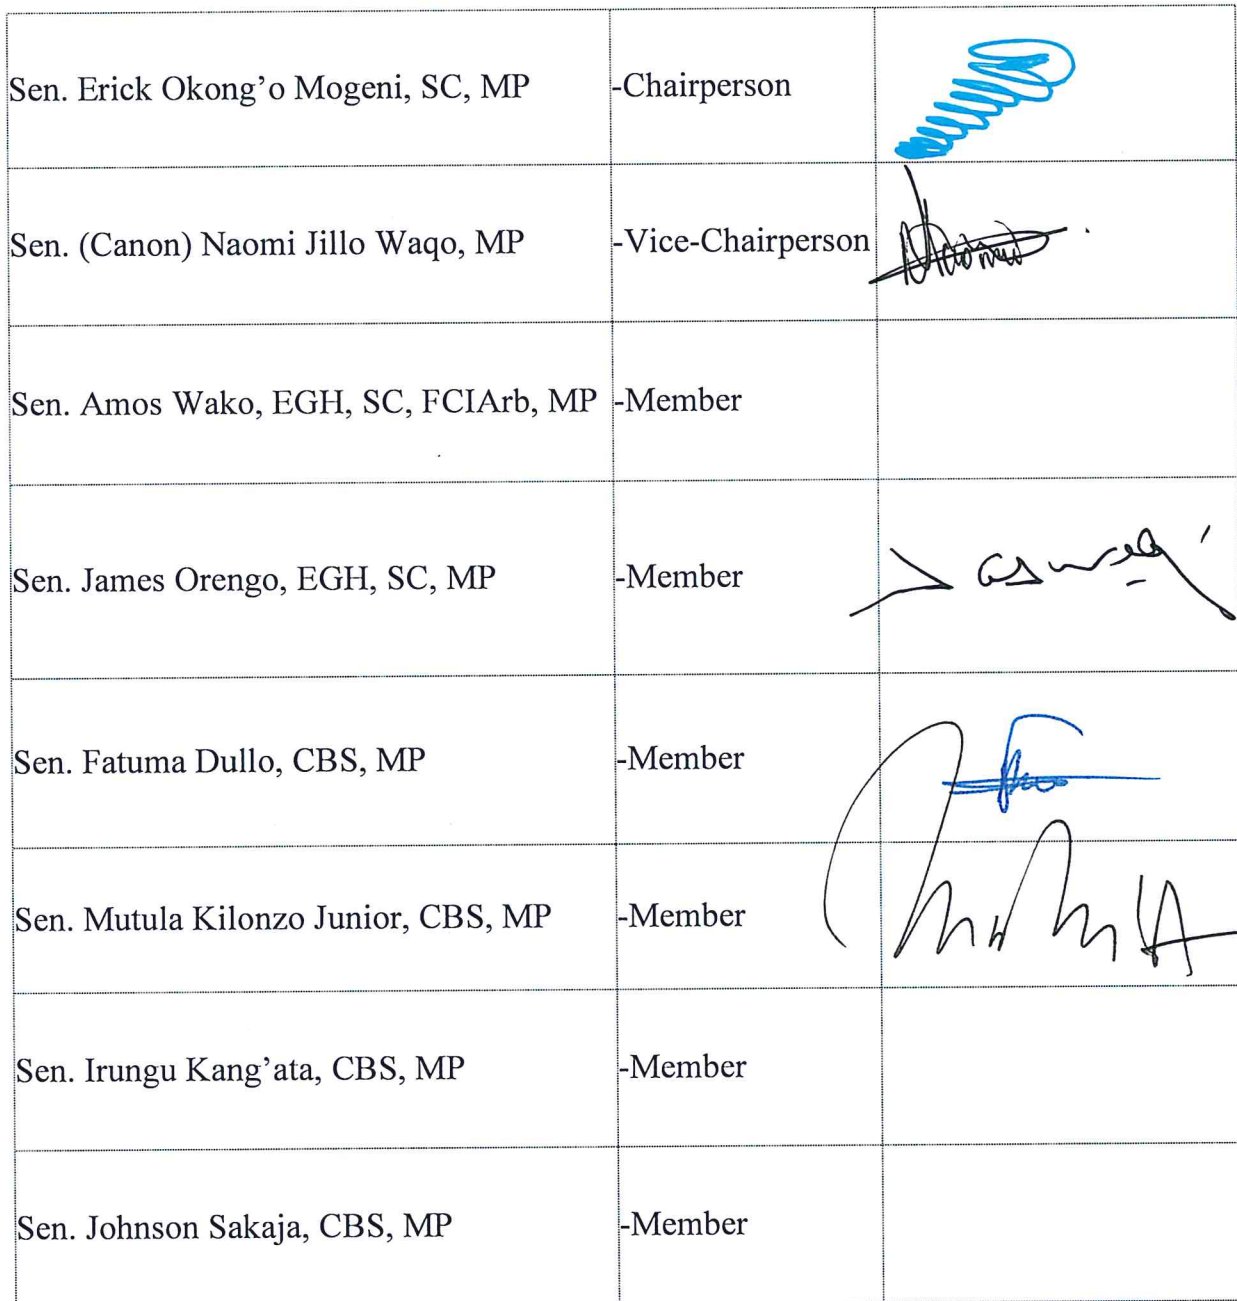 Sen. Erick Okong’o Mogeni, SC, MP -Chairperson
Sen. (Canon) Naomi Jillo Waqo, MP -Vice-Chairperson
Sen. Amos Wako, EGH, SC, FCIArb, MP -Member
Sen. James Orengo, EGH, SC, MP -Member
Sen. Fatuma Dullo, CBS, MP -Member
Sen. Mutula Kilonzo Junior, CBS, MP -Member
Sen. Irungu Kang’ata, CBS, MP -Member
Sen. Johnson Sakaja, CBS, MP -Member